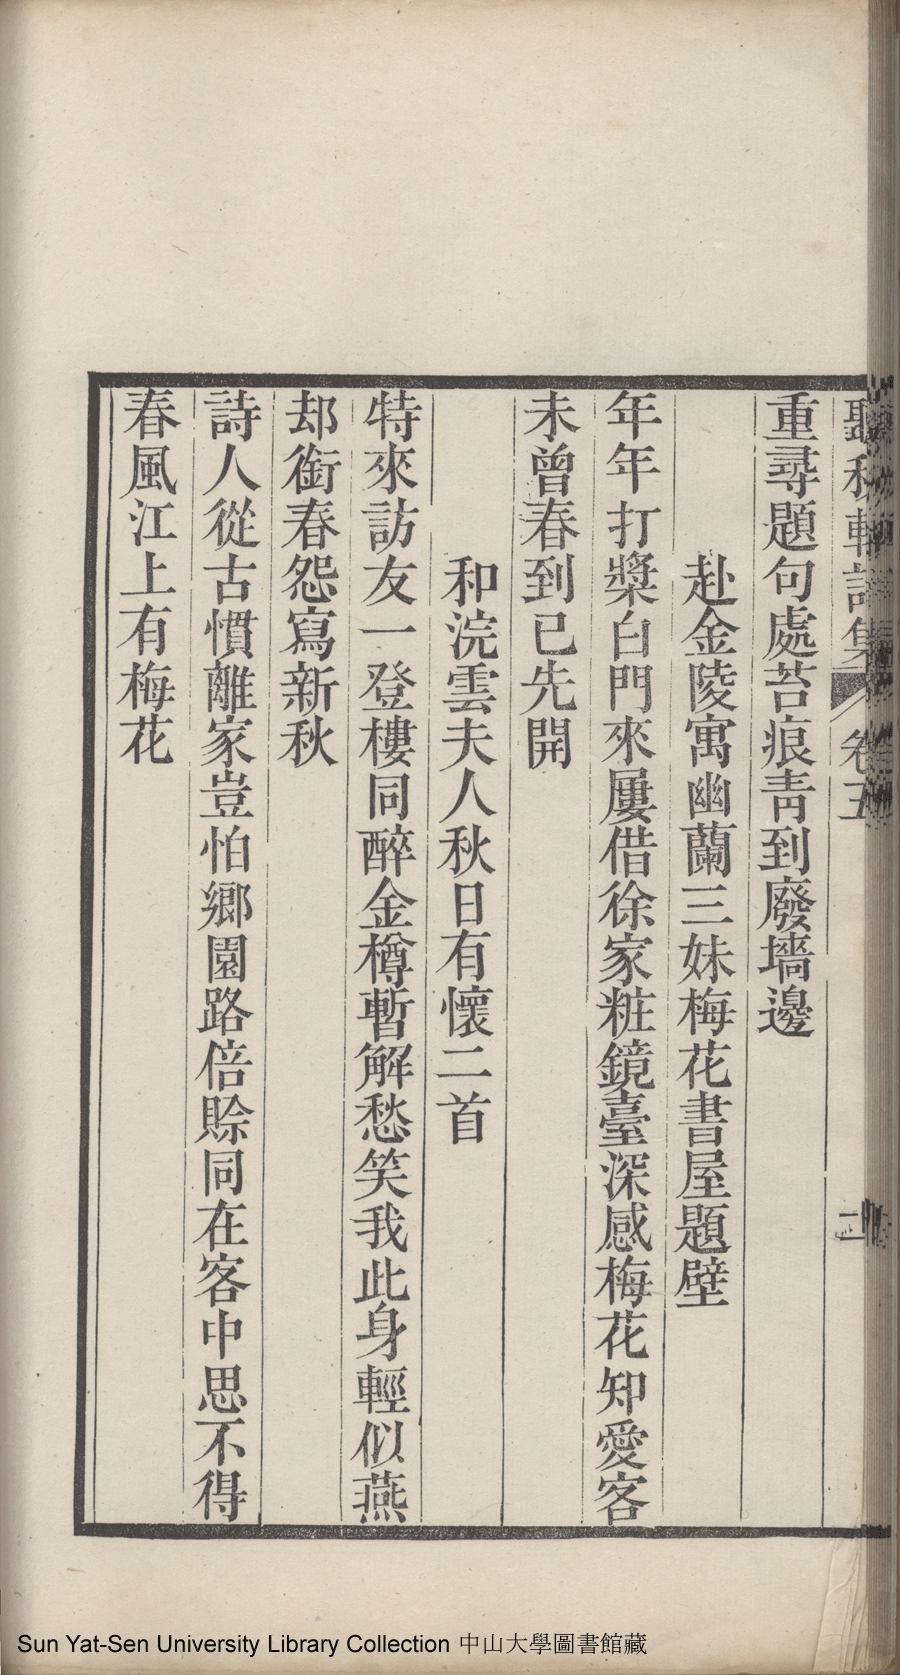 聽秋軒詩集 卷五 二
重尋題句處苔痕靑到廢墻邊
赴金陵寓幽蘭三妹梅花書屋題壁
年年打槳白門來屢借徐家粧鏡臺深感梅花知愛客
未曾春到已先開
和浣雲夫人秋日有懷二首
特來訪友一登樓同醉金樽暫解愁笑我此身輕似燕
却銜春怨寫新秋
詩人從古慣離家豈怕鄉園路倍賒同在客中思不得
春風江上有梅花
Sun Yat-Sen University Library Collection 中山大學圖書館藏